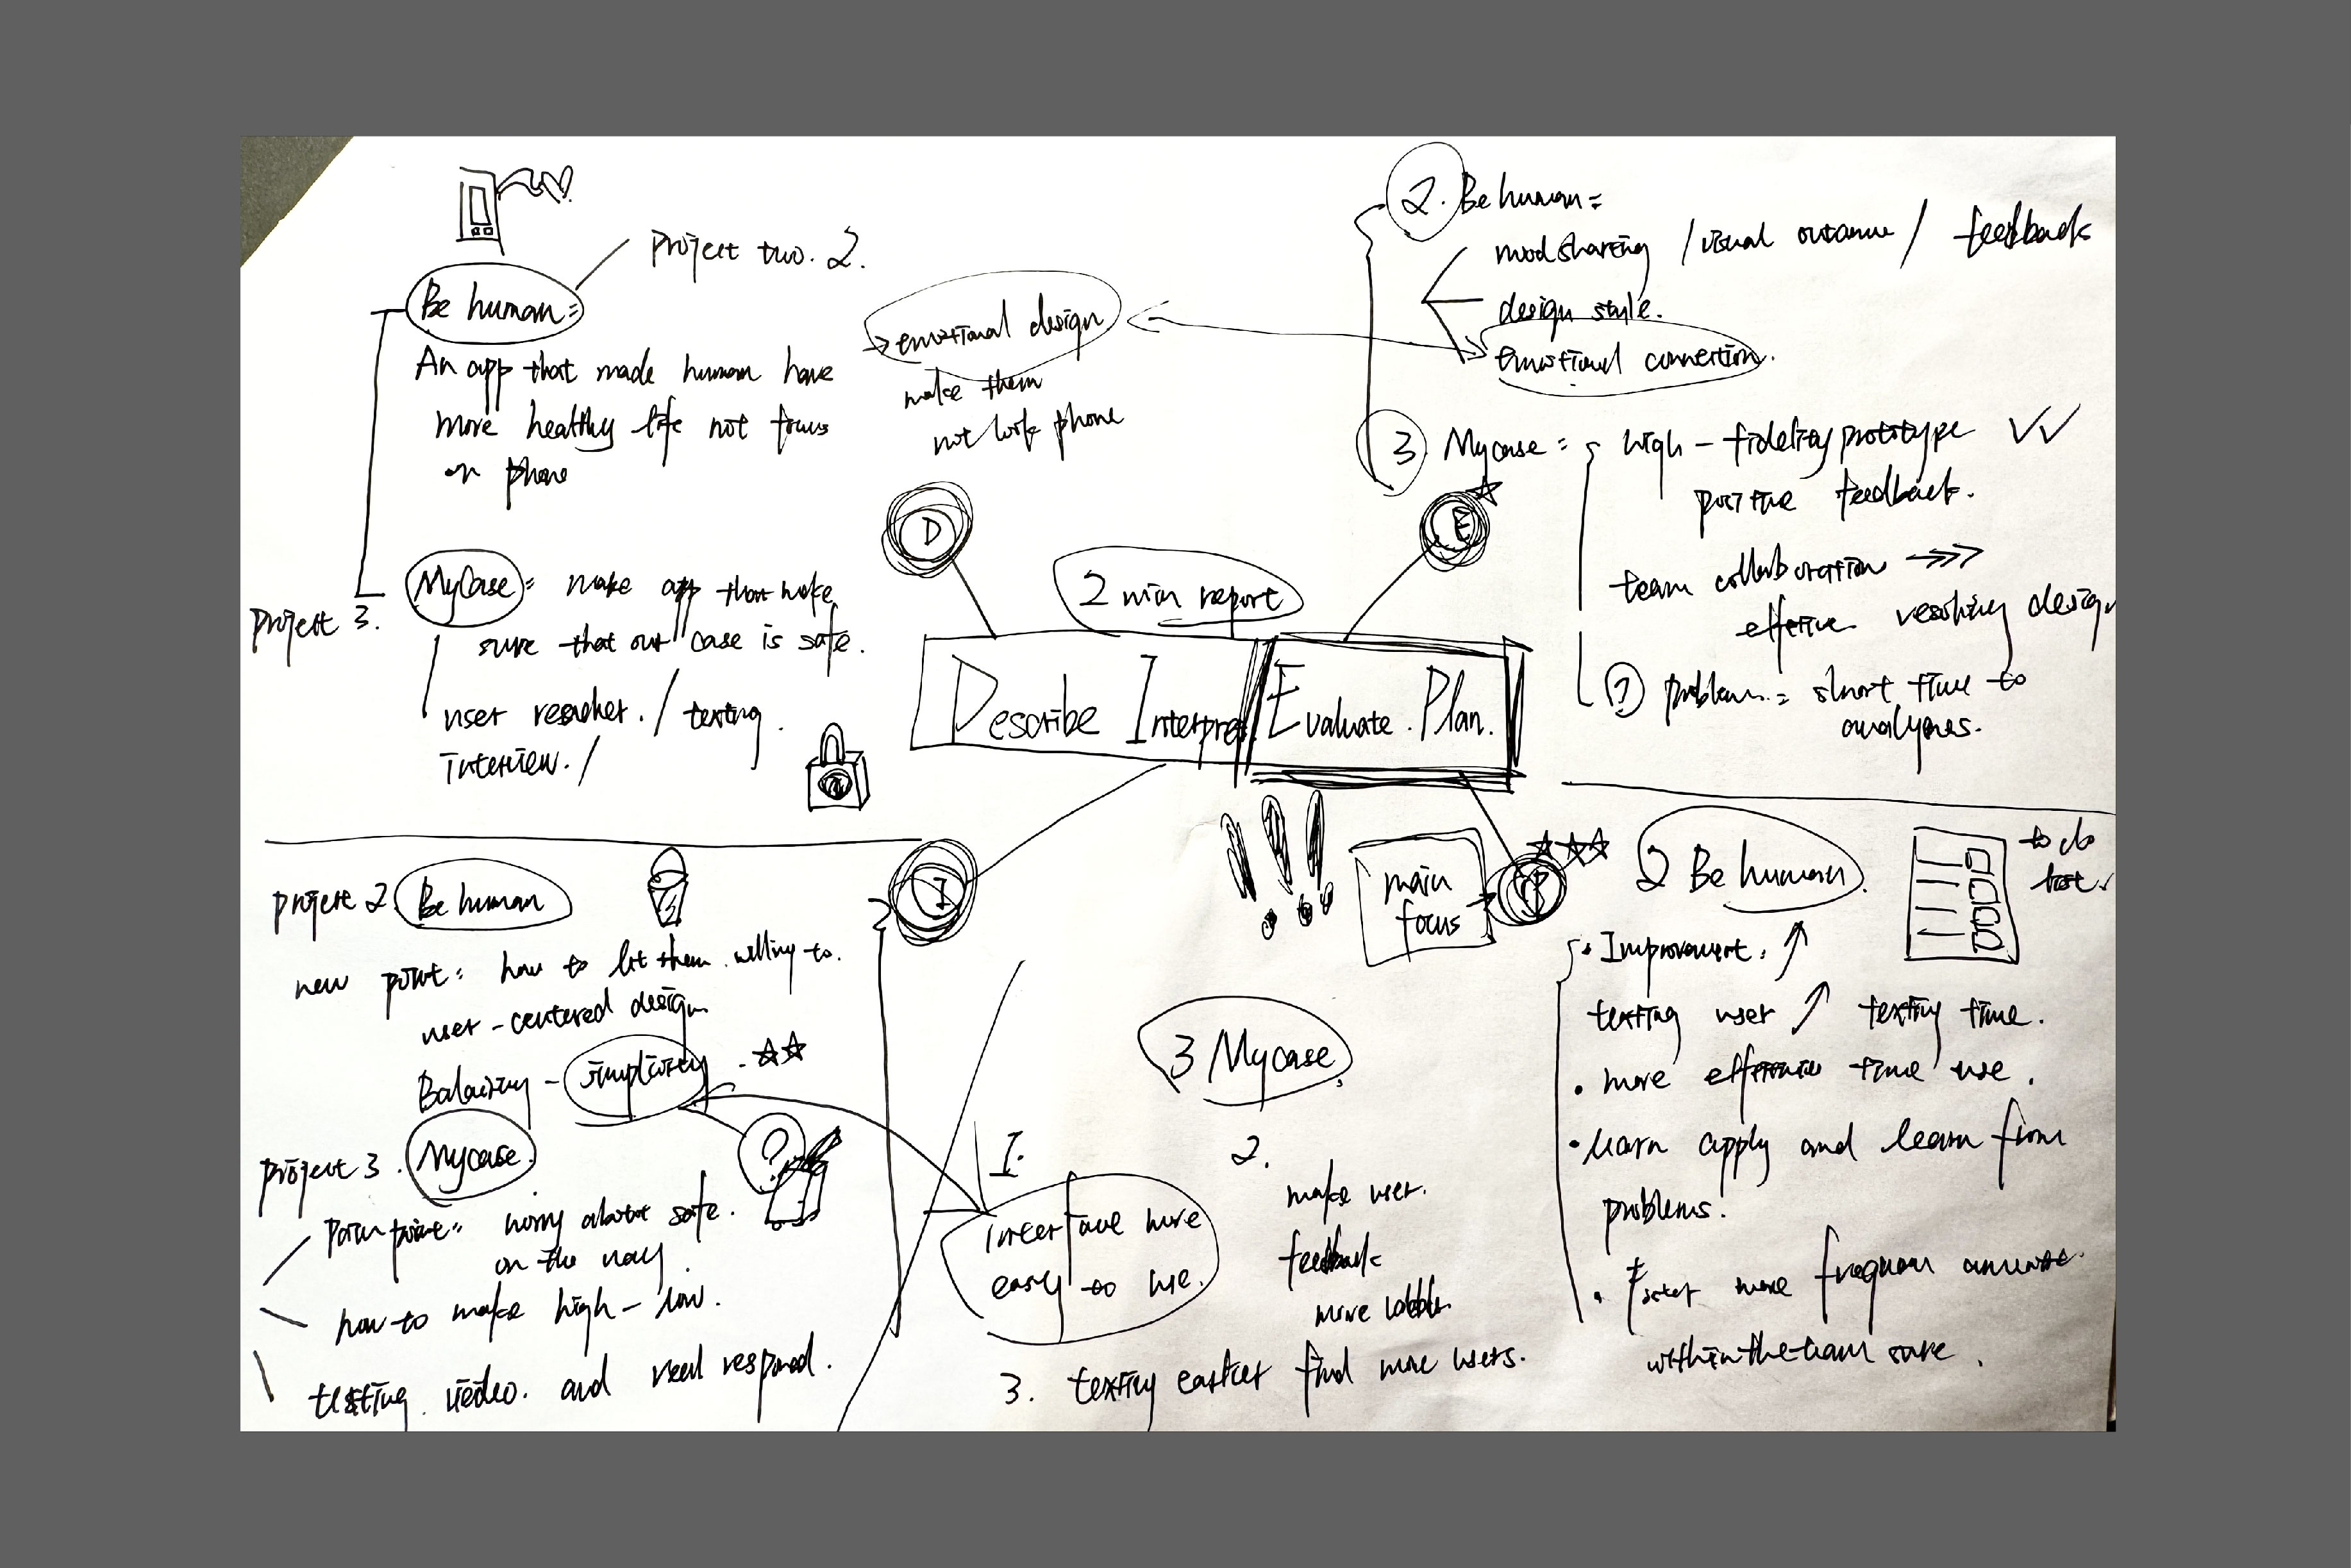 project two. 2.
Be human =
An app that made human have
more healthy life not focus
on phone
→ emotional design
make them
not look phone
Project 3.
MyCase = make app that make
sure that our case is safe.
/ testing.
interview. /
D
2 min report
E
Describe Interpret Evaluate. Plan.
2. Be human =
/ visual / feedback
design style.
emotional connection.
3 Mycase = high-fidelity prototype
positive feedback.
team collaboration
effective design
problem = short time to
project 2. Be human
new point: how to let them willing to.
user-centered design
simplicity
project 3. Mycase.
Pain point = worry about safe.
on the way.
how to make high-low.
testing video. and respond.
I
main
focus
P
3 Mycase
1.
interface more
easy to use.
2.
make user.
feedback
more
3. testing easier find more users.
2 Be human.
to do
list.
• Improvement.
testing user testing time.
• more time use.
• learn apply and learn from
problems.
• more
within the team